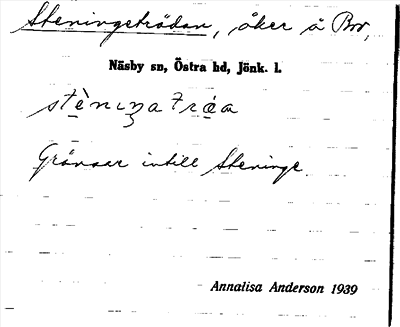 Steningeträdan, åker å Bro,
Näsby sn, Östra hd, Jönk. l.
Gränsar intill Steninge
Annalisa Anderson 1939